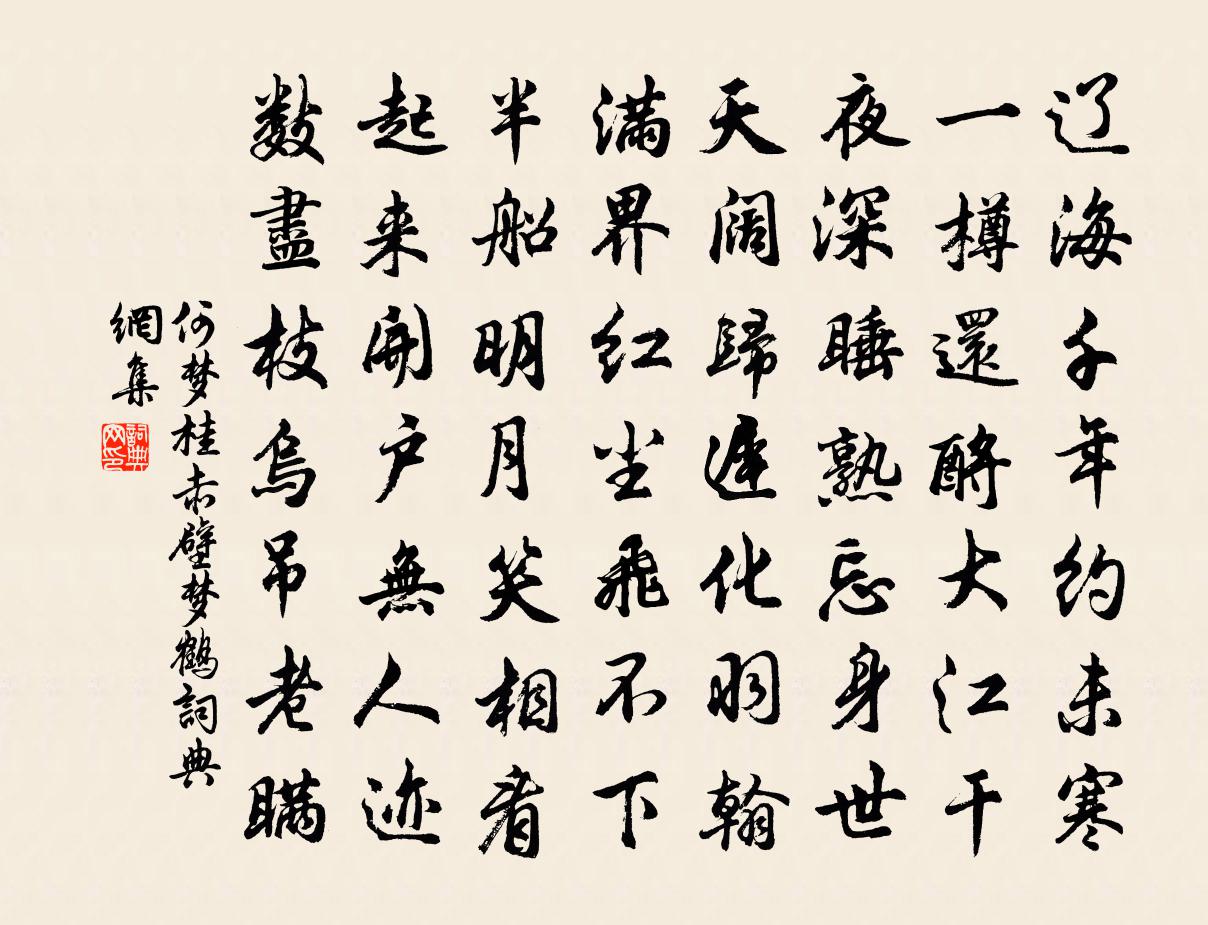 辽海千年约未寒
一樽還酹大江干
夜深睡熟忘身世
天阔歸遲化羽翰
满界红尘飛不下
半船明月笑相看
起来開户無人迹
数盡枝烏吊老瞒
何梦桂赤壁梦鶴詞典
網集
詞典
网印